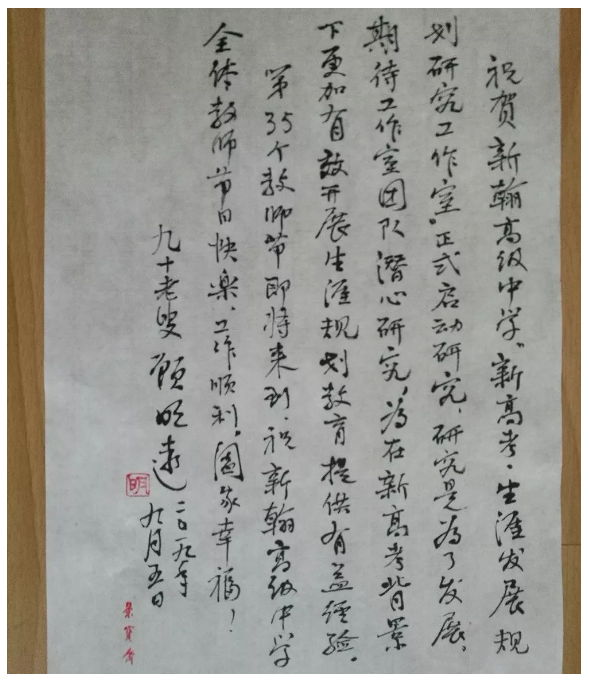 祝贺新翰高级中学“新高考·生涯发展规
划研究工作室”正式启动研究,研究是为了发展,
期待工作室团队潜心研究,为在新高考背景
下更加有效开展生涯规划教育提供有益经验。
第35个教师节即将来到,祝新翰高级中学
全体教师节日快乐、工作顺利、阖家幸福!
九十老叟 顾明远
二〇一九年
九月五日
明
荣宝斋